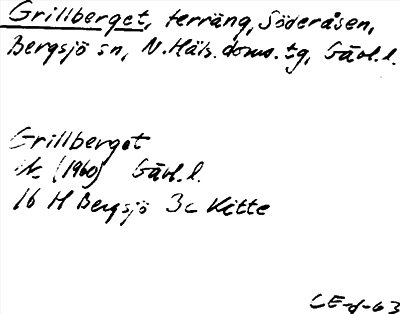 Grillberget, terräng, Söderåsen,
Bergsjö sn, N. Häls. doms. tg, Gävl. l.
Grillberget
(1960) Gävl. l.
16 H Bergsjö 3c Kitte
63